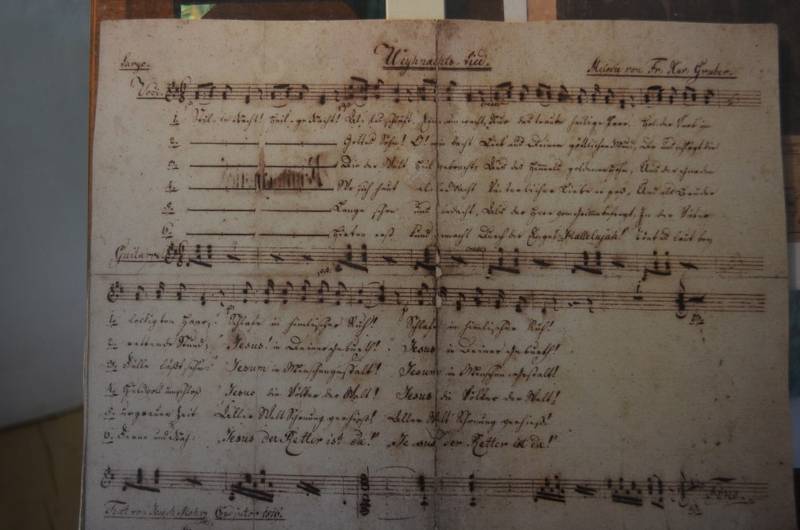 Largo. Weyhnachts-Lied. Melodie von Fr. Xav. Gruber.
Voce.
1. Stille Nacht! Heilige Nacht! Alles schläft. Einsam wacht, Nur das traute heilige Paar. Holder Knab' im
2. Gottes Sohn! O! wie lacht Lieb' aus Deinem göttlichen Mund, uns
3. Die der Welt Heil gebracht, Aus des Himmels goldenen Höhn,
4. Wo sich heut alle Macht Väterlicher Liebe ergoß, Und als Bruder
5. Lange schon uns bedacht, Als der Herr vom Grimme befreyt, In der Väter
6. Hirten erst kund gemacht Durch der Engel Hallelujah!
Guitarre
1. lockigten Haar; Schlafe in himmlischer Ruh! Schlafe in himmlischer Ruh!
2. rettende Stund, Jesus! in Deiner Geburth! Jesus in Deiner Geburth!
3. Fülle läßt sehn: Jesum in Menschengestalt! Jesum in Menschengestalt!
4. Huldvoll umschloß Jesus die Völker der Welt! Jesus die Völker der Welt!
5. urgrauer Zeit Aller Welt Schonung verhieß! Aller Welt Schonung verhieß!
6. Ferne und Nah: Jesus der Retter ist da! Jesus der Retter ist da!
Fine.
Text von Joseph Mohr Coadjutor 1816.